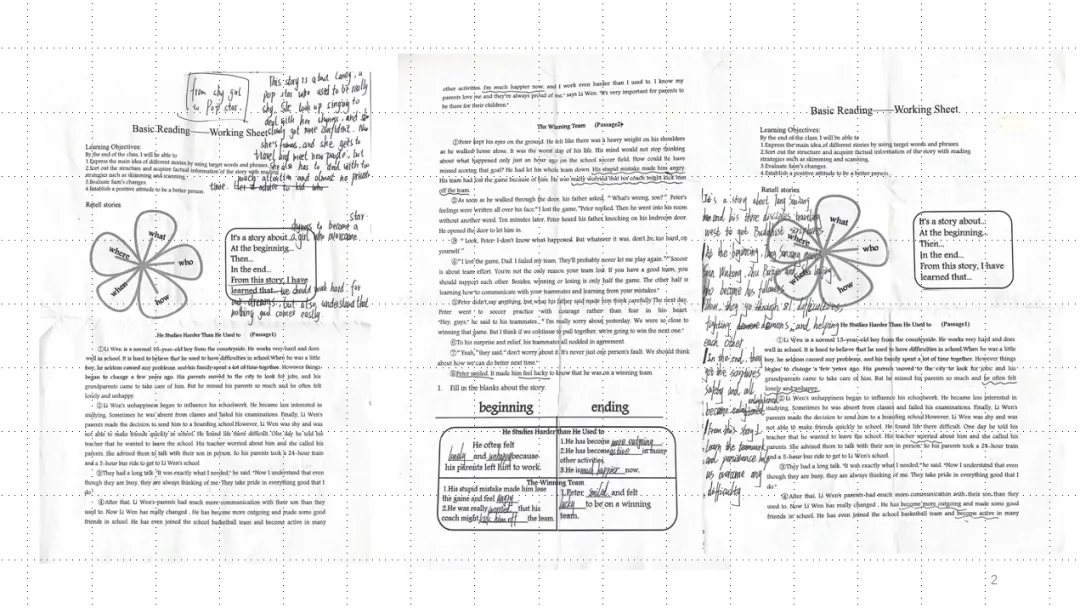 from shy girl
to Pop star.
This story is about Candy, a
pop star who used to be really
shy. She took up singing to
deal with her shyness, and so
slowly got more confident. Now
she's famous, and she gets to
travel and meet new people, but
she also has to deal with too
much attention and almost no private
time.
Basic Reading——Working Sheet
Learning Objectives:
By the end of the class. I will be able to
1.Express the main idea of different stories by using target words and phrases.
2.Sort out the structure and acquire factual information of the story with reading
strategies such as skimming and scanning.
3.Evaluate Sam's changes.
4.Establish a positive attitude to be a better person.
Retell stories
what
where
who
when
how
It's a story about a girl who overcame
shyness to become a star.
At the beginning...
Then...
In the end...
From this story, I have
learned that... we should work hard for
our dreams, but also understand that
nothing good comes easily.
He Studies Harder Than He Used to (Passage1)
①Li Wen is a normal 15-year-old boy from the countryside. He works very hard and does
well in school. It is hard to believe that he used to have difficulties in school. When he was a little
boy, he seldom caused any problems, and his family spent a lot of time together. However things
began to change a few years ago. His parents moved to the city to look for jobs, and his
grandparents came to take care of him. But he missed his parents so much and he often felt
lonely and unhappy.
②Li Wen's unhappiness began to influence his schoolwork. He became less interested in
studying. Sometimes he was absent from classes and failed his examinations. Finally, Li Wen's
parents made the decision to send him to a boarding school. However, Li Wen was shy and was
not able to make friends quickly in school. He found life there difficult. One day he told his
teacher that he wanted to leave the school. His teacher worried about him and the called his
parents. She advised them to talk with their son in person. So his parents took a 24-hour train
and a 5-hour bus ride to get to Li Wen's school.
③They had a long talk. "It was exactly what I needed," he said. "Now I understand that even
though they are busy, they are always thinking of me. They take pride in everything good that I
do."
④After that, Li Wen's parents had much more communication with their son than they
used to. Now Li Wen has really changed. He has become more outgoing and made some good
friends in school. He has even joined the school basketball team and become active in many
other activities. I'm much happier now, and I work even harder than I used to. I know my
parents love me and they're always proud of me." says Li Wen. "It's very important for parents to
be there for their children."
The Winning Team (Passage2)
①Peter kept his eyes on the ground. He felt like there was a heavy weight on his shoulders
as he walked home alone. It was the worst day of his life. His mind would not stop thinking
about what happened only just an hour ago on the school soccer field. How could he have
missed scoring that goal? He had let his whole team down. His stupid mistake made him angry.
His team had lost the game because of him. He was really worried that his coach might kick him
off the team.
②As soon as he walked through the door, his father asked, "What's wrong, son?" Peter's
feelings were written all over his face."I lost the game," Peter replied. Then he went into his room
without another word. Ten minutes later, Peter heard his father knocking on his bedroom door.
He opened the door to let him in.
③" Look, Peter. I don't know what happened. But whatever it was, don't be too hard on
yourself."
④"I lost the game, Dad. I failed my team. They'll probably never let me play again." "Soccer
is about team effort. You're not the only reason your team lost. If you have a good team, you
should support each other. Besides, winning or losing is only half the game. The other half is
learning how to communicate with your teammates and learning from your mistakes."
⑤Peter didn't say anything, but what his father said made him think carefully. The next day,
Peter went to soccer practice with courage rather than fear in his heart.
"Hey, guys," he said to his teammates.." I'm really sorry about yesterday. We were so close to
winning that game. But I think if we continue to pull together, we're going to win the next one."
⑥To his surprise and relief, his teammates all nodded in agreement.
⑦"Yeah," they said, "don't worry about it. It's never just one person's fault. We should think
about how we can do better next time."
⑧Peter smiled. It made him feel lucky to know that he was on a winning team.
1. Fill in the blanks about the story.
beginning ending
He Studies Harder than He Used to
He often felt
lonely and unhappy because
his parents left him to work.
1.He has become more outgoing.
2.He has become active in many
other activities.
3.He is much happier now.
The Winning Team
1.His stupid mistake made him lose
the game and feel angry.
2.He was really worried that his
coach might kick him off the team.
1.Peter smiled and felt
lucky to be on a winning
team.
Basic Reading——Working Sheet.
Learning Objectives:
By the end of the class. I will be able to
1.Express the main idea of different stories by using target words and phrases
2.Sort out the structure and acquire factual information of the story with reading
strategies such as skimming and scanning.
3.Evaluate Sam's changes.
4.Establish a positive attitude to be a better person.
Retell stories
what
where
who
when
how
It's a story about...
At the beginning...
Then...
In the end...
From this story, I have
learned that...
It's a story about Tang Sanzang
and his three disciples traveling
west to get Buddhist scriptures.
At the beginning, Tang Sanzang
Sun Wukong, Zhu Bajie
who became his followers.
Then, they go through 81 difficulties,
fighting demons, and helping
each other
In the end, they
got the scriptures
safely and all
became enlightened
From this story, I
learn the teamwork
and persistence help
us overcome any
difficulty
He Studies Harder Than He Used to (Passage1)
①Li Wen is a normal 15-year-old boy from the countryside. He works very hard and does
well in school. It is hard to believe that he used to have difficulties in school. When he was a little
boy, he seldom caused any problems, and his family spent a lot of time together. However things
began to change a few years ago. His parents moved to the city to look for jobs, and his
grandparents came to take care of him. But he missed his parents so much and he often felt
lonely and unhappy.
②Li Wen's unhappiness began to influence his schoolwork. He became less interested in
studying. Sometimes he was absent from classes and failed his examinations. Finally, Li Wen's
parents made the decision to send him to a boarding school. However, Li Wen was shy and was
not able to make friends quickly in school. He found life there difficult. One day he told his
teacher that he wanted to leave the school. His teacher worried about him and the called his
parents. She advised them to talk with their son in person. So his parents took a 24-hour train
and a 5-hour bus ride to get to Li Wen's school.
③They had a long talk. "It was exactly what I needed," he said. "Now I understand that even
though they are busy, they are always thinking of me. They take pride in everything good that I
do."
④After that, Li Wen's parents had much more communication with their son than they
used to. Now Li Wen has really changed. He has become more outgoing and made some good
friends in school. He has even joined the school basketball team and become active in many
2